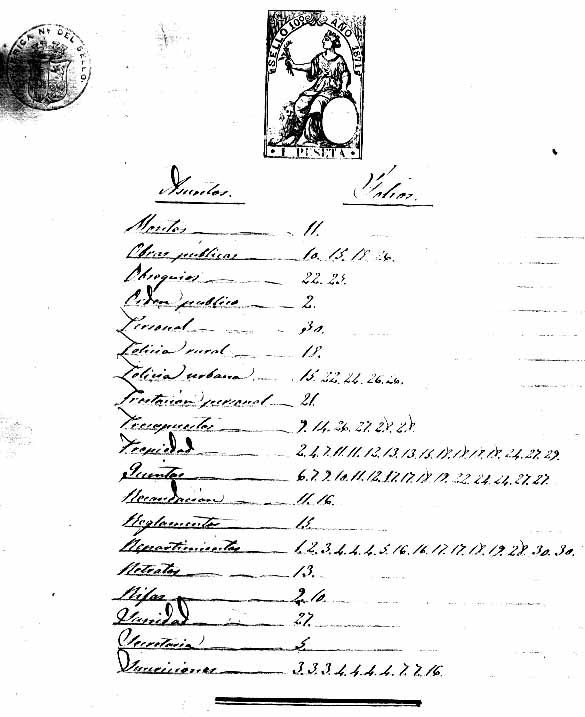 FABRICA Nl DEL SELLO
SELLO 10º AÑO 1871
1 PESETA
Asuntos. Folios.
Montes 11.
Obras públicas 10. 15. 18. 26.
Obsequios 22. 25.
Orden publico 2.
Personal 30.
Policia rural 18.
Policia urbana 15. 22. 24. 26. 26.
Prestacion personal 21.
Presupuestos 9. 14. 26. 27. 28. 28.
Propiedad 2. 4. 7. 11. 11. 12. 13. 13. 15. 18. 18. 17. 18. 24. 27. 29.
Quintas 6. 7. 9. 10. 11. 12. 17. 17. 18. 19. 22. 24. 24. 27. 27.
Recaudacion 11. 16.
Reglamentos 15.
Repartimientos 1. 2. 3. 4. 4. 4. 5. 16. 16. 17. 17. 18. 19. 28. 30. 30.
Retratos 13.
Rifas 9. 10.
Sanidad 27.
Secretaria 5.
Suscriciones 3. 3. 3. 4. 4. 4. 4. 7. 7. 16.